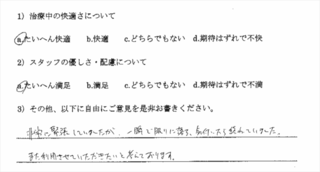 1）治療中の快適さについて
a.たいへん快適 b.快適 c.どちらでもない d.期待はずれで不快
2）スタッフの優しさ・配慮について
a.たいへん満足 b.満足 c.どちらでもない d.期待はずれで不満
3）その他、以下に自由にご意見を是非お書きください。
非常に緊張していましたが、一瞬で眠りに落ち、気付いたら終んでいました。
また利用させていただきたいと考えております。